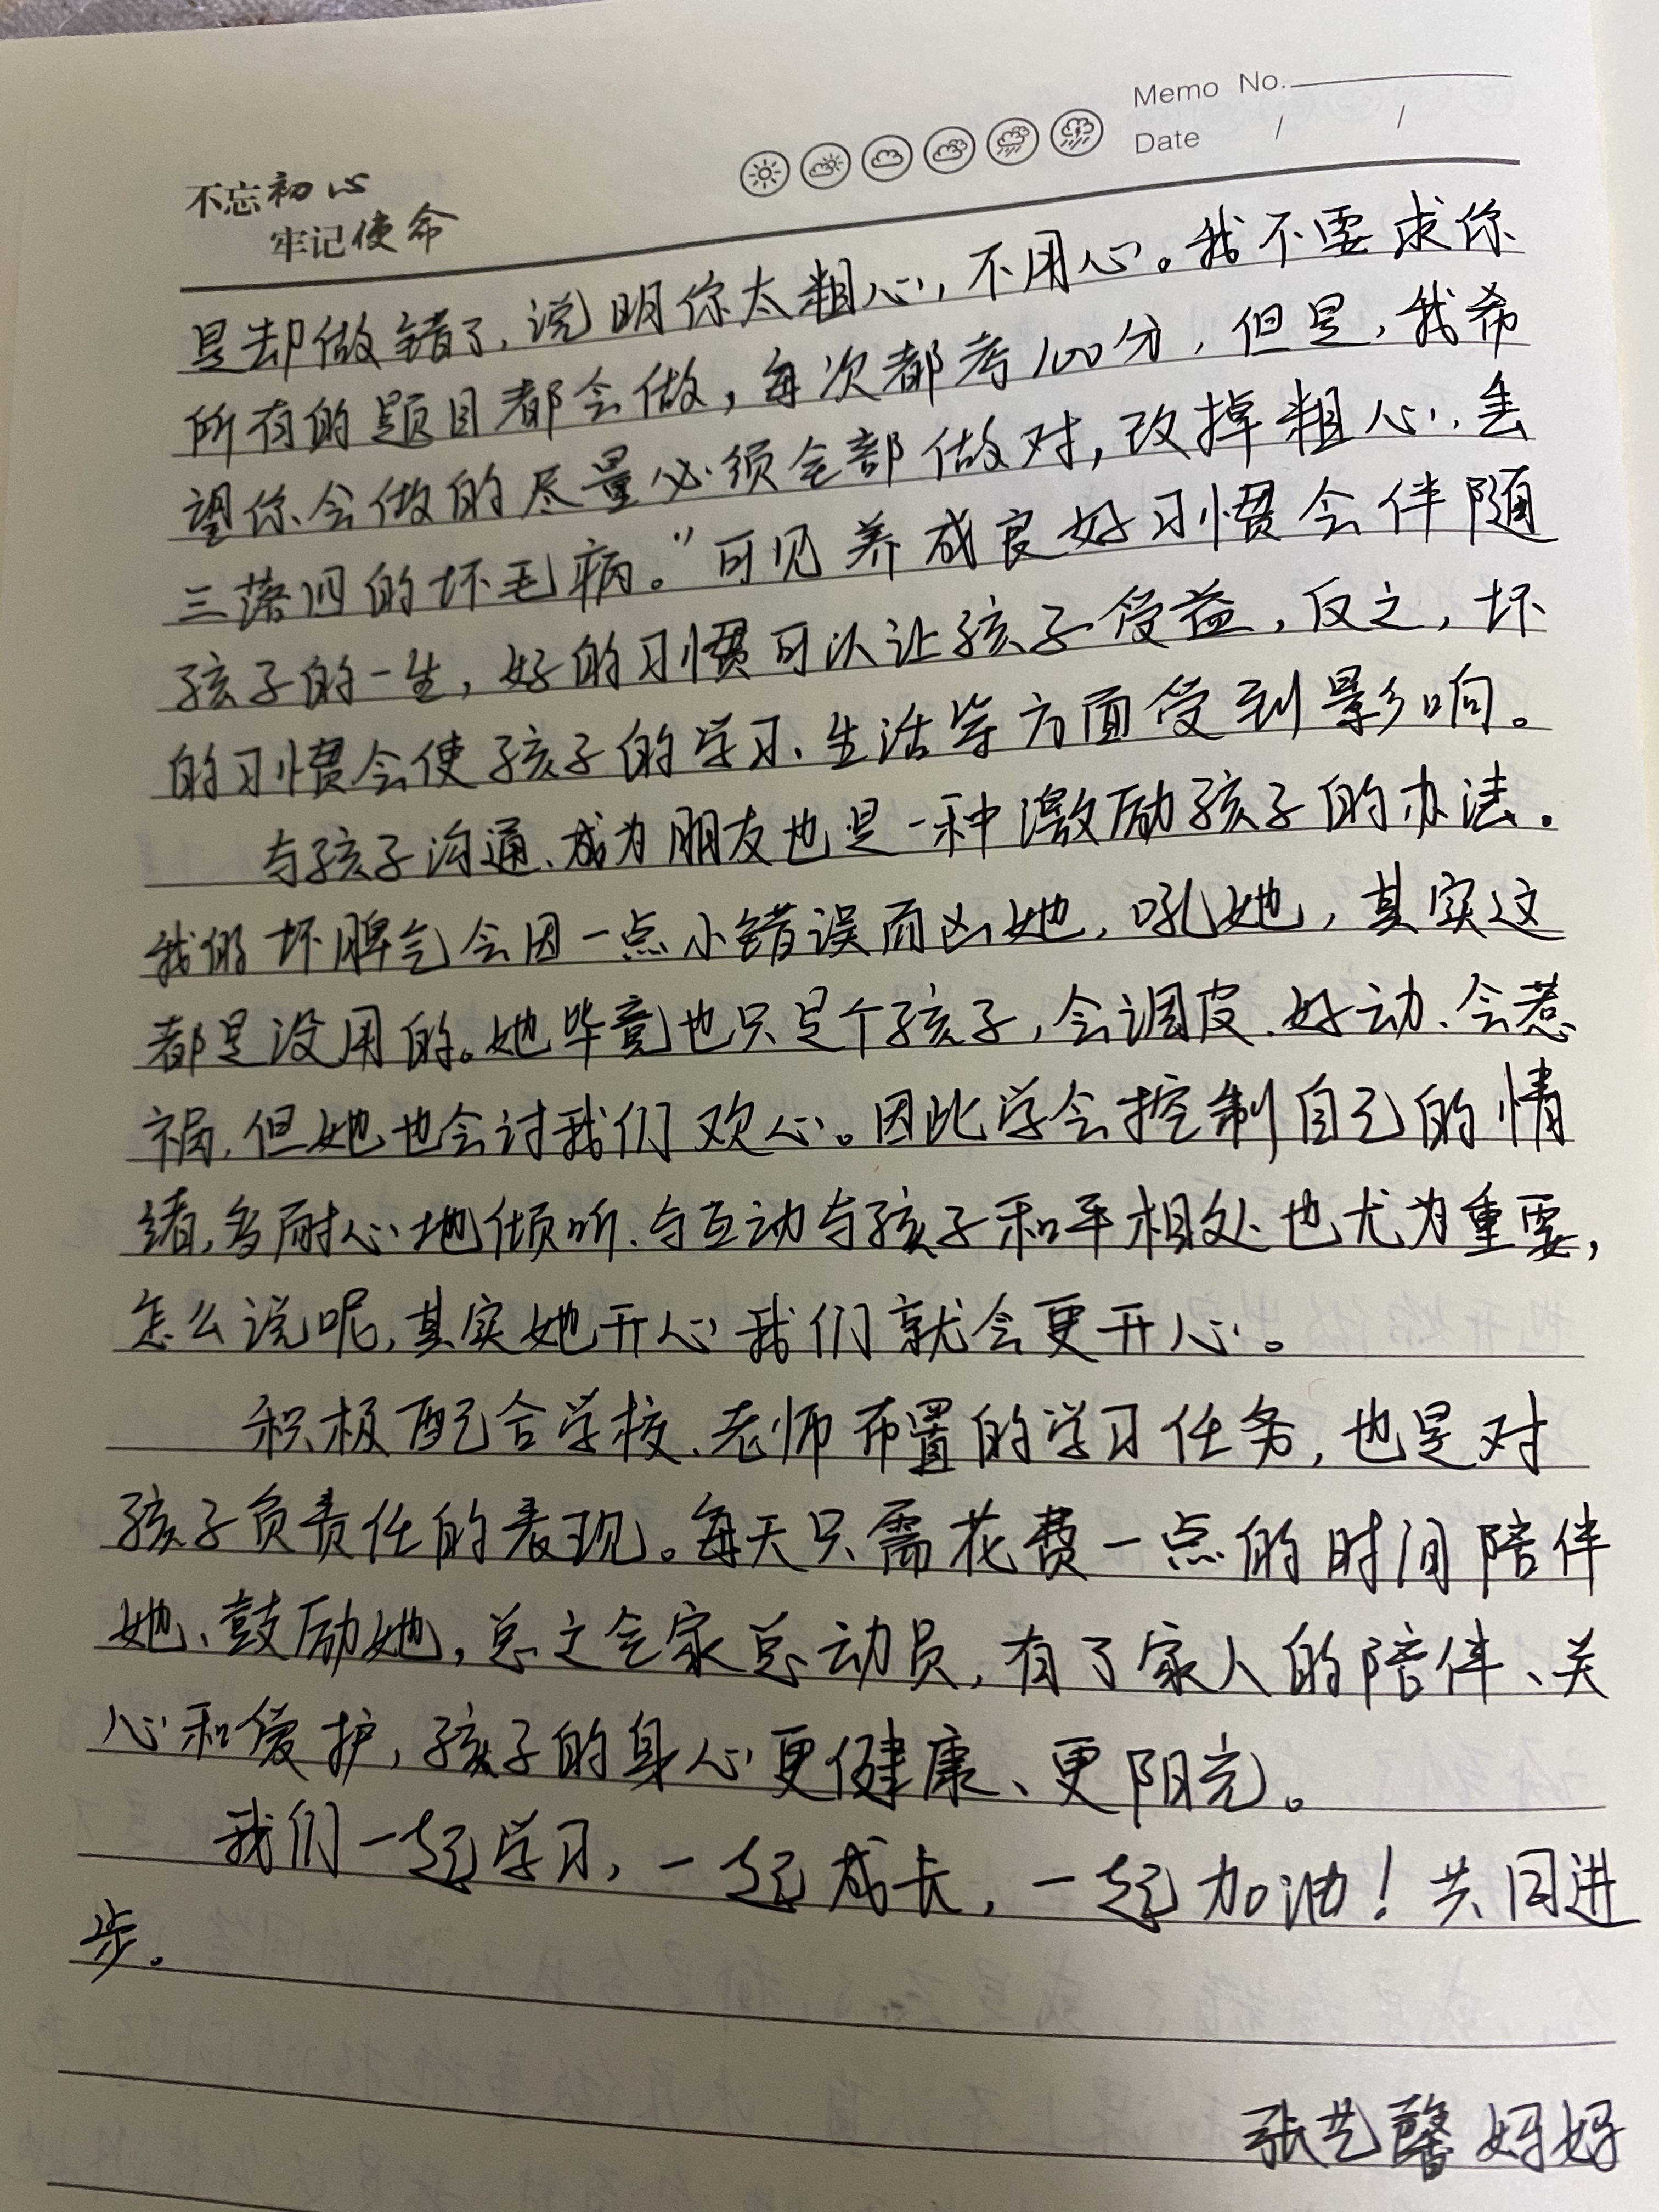 Memo No.
Date / /
不忘初心
牢记使命
是却做错了，说明你太粗心，不用心。我不要求你
所有的题目都会做，每次都考100分，但是，我希
望你会做的尽量必须全部做对，改掉粗心，丢
三落四的坏毛病。”可见养成良好习惯会伴随
孩子的一生，好的习惯可以让孩子受益，反之，坏
的习惯会使孩子的学习、生活等方面受到影响。
与孩子沟通、成为朋友也是一种激励孩子的办法。
我们坏脾气会因一点小错误而凶她，吼她，其实这
都是没用的。她毕竟也只是个孩子，会调皮、好动、会惹
祸，但她也会讨我们欢心。因此学会控制自己的情
绪，多耐心地倾听、与互动与孩子和平相处也尤为重要，
怎么说呢，其实她开心我们就会更开心。
积极配合学校、老师布置的学习任务，也是对
孩子负责任的表现。每天只需花费一点的时间陪伴
她、鼓励她，总之全家总动员，有了家人的陪伴、关
心和爱护，孩子的身心更健康、更阳光。
我们一起学习，一起成长，一起加油！共同进
步。
张艺馨妈妈